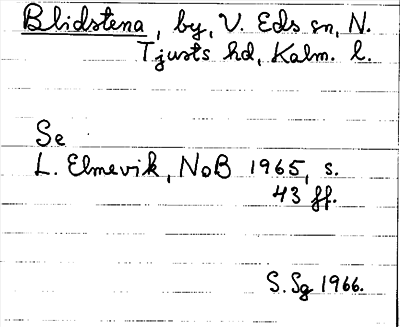 Blidstena, by, V. Eds sn, N.
Tjusts hd, Kalm. l.
Se
L. Elmevik, NoB 1965, s.
43 ff.
S. Sg 1966.